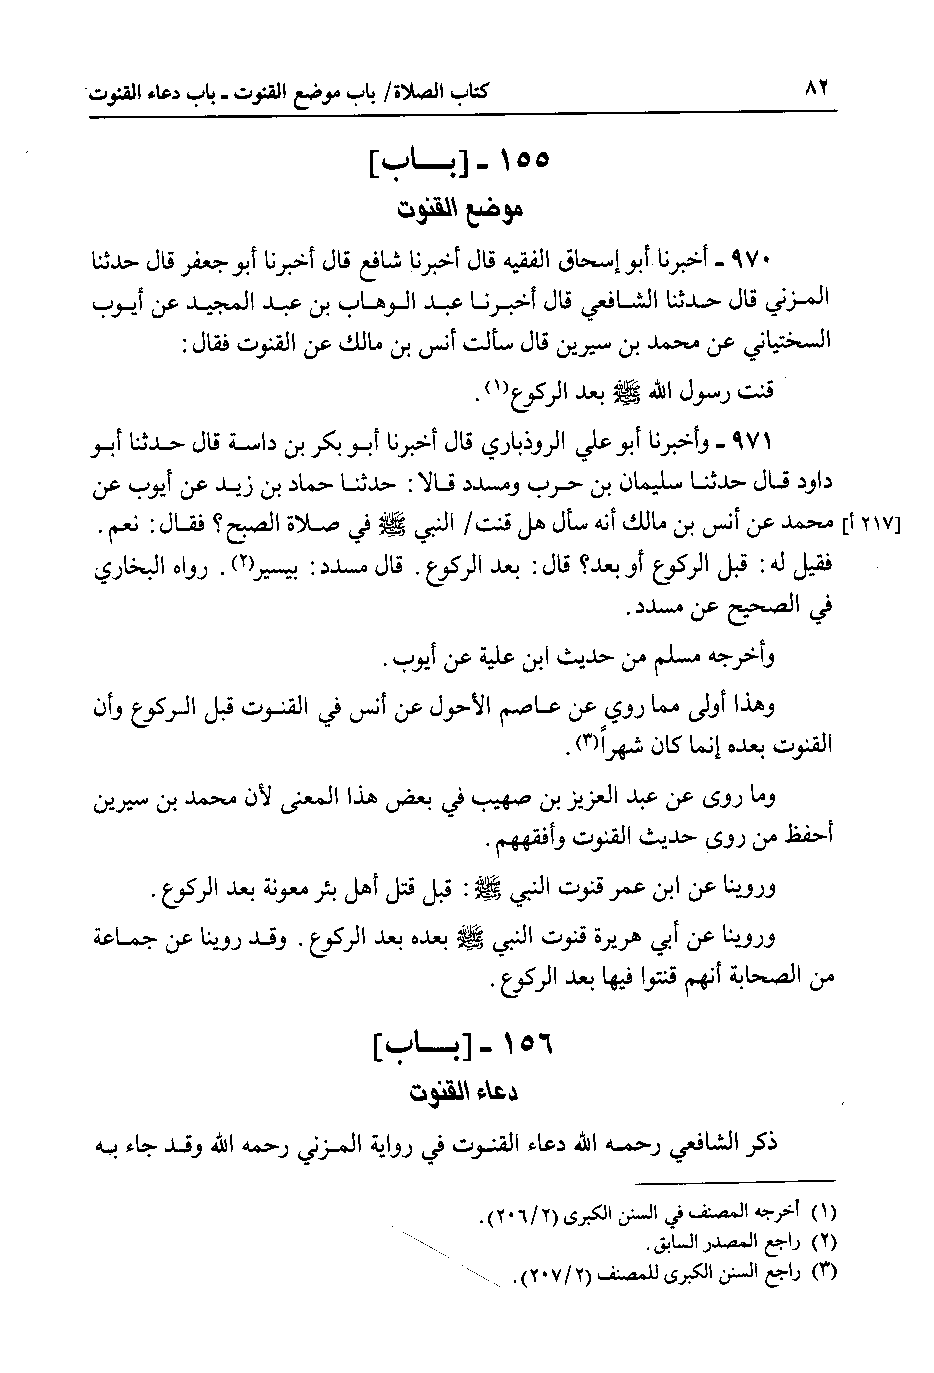 ٨٢
كتاب الصلاة/ باب موضع القنوت ـ باب دعاء القنوت
١٥٥ ـ [بــاب]
موضع القنوت
٩٧٠ ـ أخبرنا أبو إسحاق الفقيه قال أخبرنا شافع قال أخبرنا أبو جعفر قال حدثنا
المزني قال حدثنا الشافعي قال أخبرنا عبد الوهاب بن عبد المجيد عن أيوب
السختياني عن محمد بن سيرين قال سألت أنس بن مالك عن القنوت فقال:
قنت رسول الله ﷺ بعد الركوع(١).
٩٧١ ـ وأخبرنا أبو علي الروذباري قال أخبرنا أبو بكر بن داسة قال حدثنا أبو
داود قال حدثنا سليمان بن حرب ومسدد قالا: حدثنا حماد بن زيد عن أيوب عن
[٢١٧ أ] محمد عن أنس بن مالك أنه سأل هل قنت/ النبي ﷺ في صلاة الصبح؟ فقال: نعم.
فقيل له: قبل الركوع أو بعد؟ قال: بعد الركوع. قال مسدد: بيسير(٢). رواه البخاري
في الصحيح عن مسدد.
وأخرجه مسلم من حديث ابن علية عن أيوب.
وهذا أولى مما روي عن عاصم الأحول عن أنس في القنوت قبل الركوع وأن
القنوت بعده إنما كان شهراً(٣).
وما روى عن عبد العزيز بن صهيب في بعض هذا المعنى لأن محمد بن سيرين
أحفظ من روى حديث القنوت وأفقههم.
وروينا عن ابن عمر قنوت النبي ﷺ: قبل قتل أهل بئر معونة بعد الركوع.
وروينا عن أبي هريرة قنوت النبي ﷺ بعده بعد الركوع. وقد روينا عن جماعة
من الصحابة أنهم قنتوا فيها بعد الركوع.
١٥٦ ـ [بــاب]
دعاء القنوت
ذكر الشافعي رحمه الله دعاء القنوت في رواية المزني رحمه الله وقد جاء به
(١) أخرجه المصنف في السنن الكبرى (٢/٢٠٦).
(٢) راجع المصدر السابق.
(٣) راجع السنن الكبرى للمصنف (٢/٢٠٧).